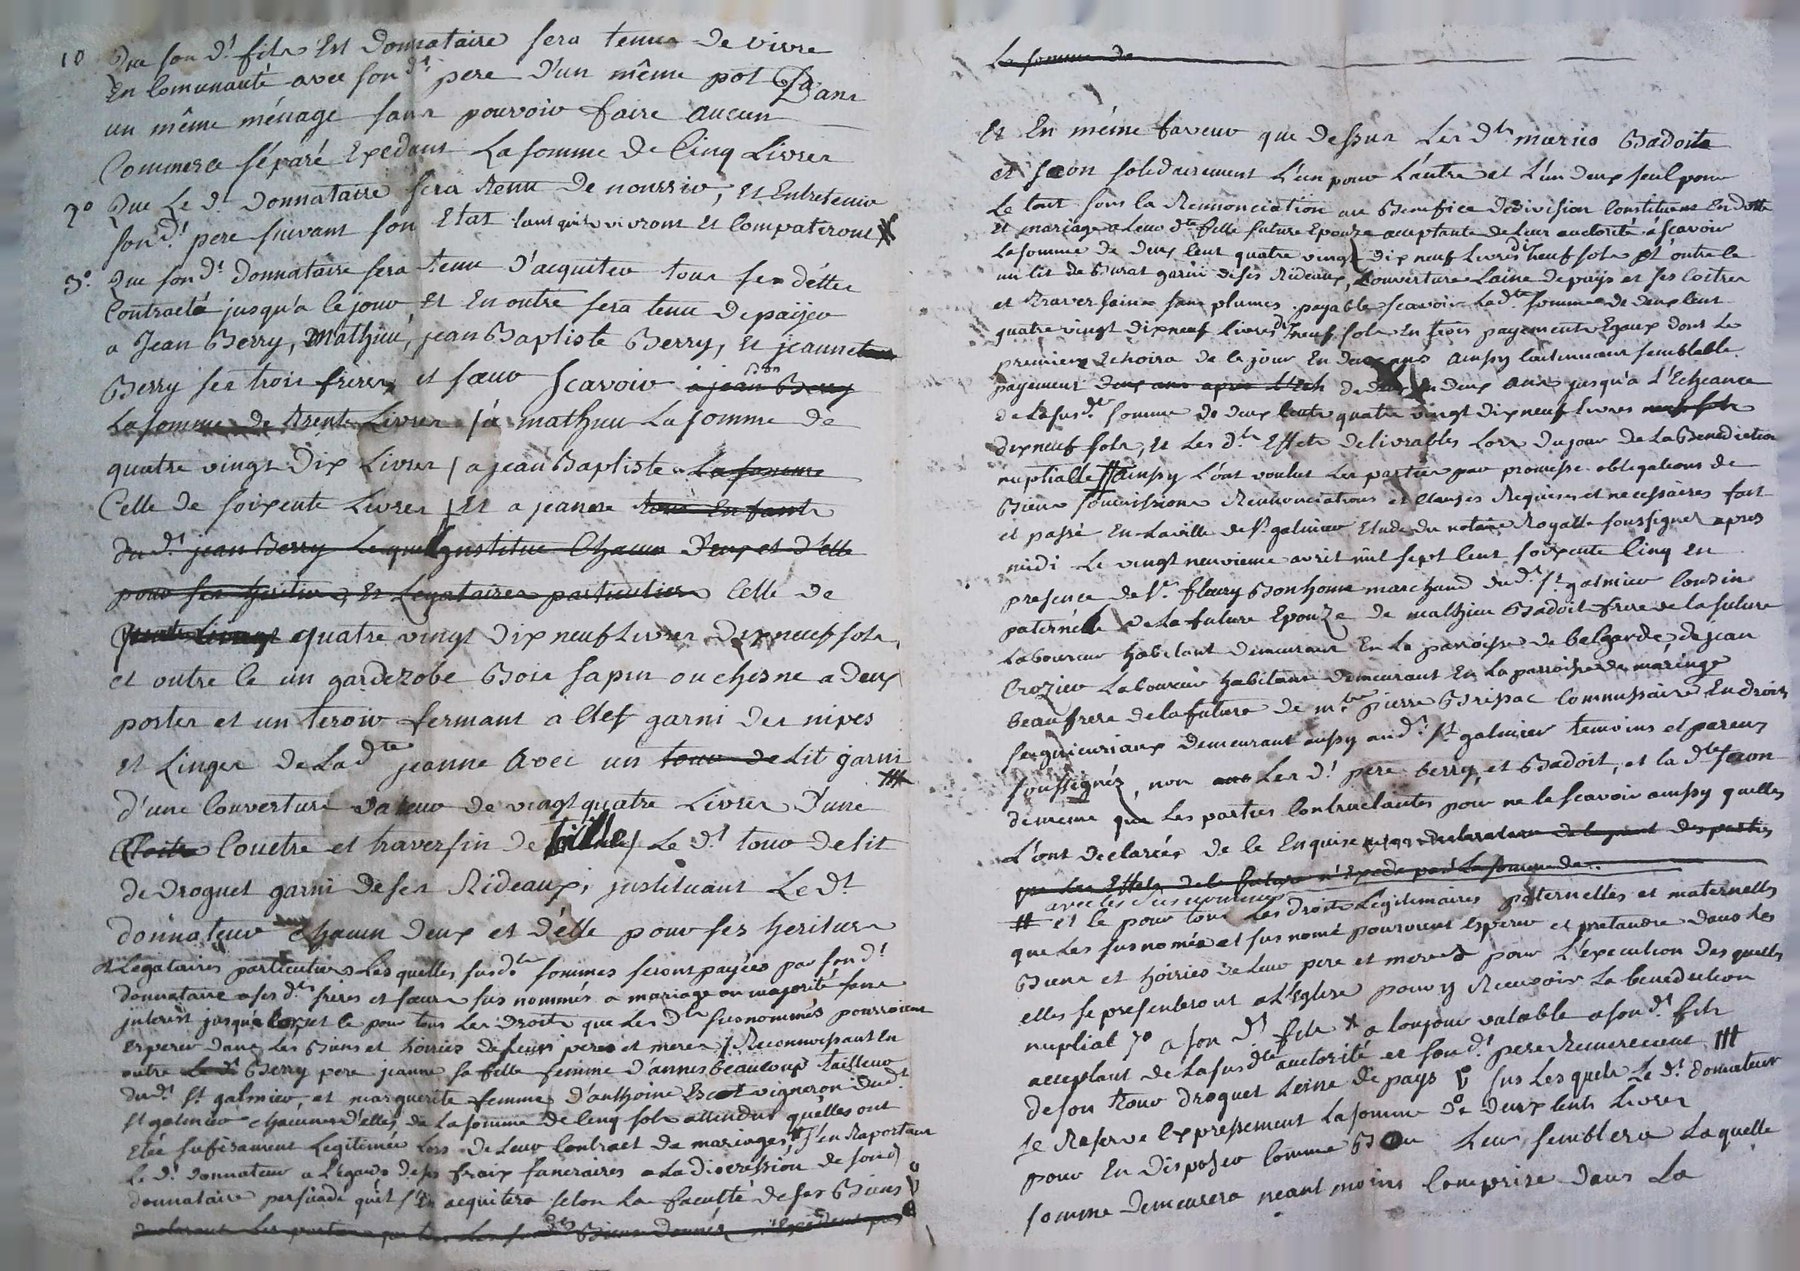 1o Que son dt fils Est Donnataire sera tenu de vivre
En Comunauté avec son dt pere d'un même pot Dans
un même ménage sans pouvoir faire aucun
Commerce séparé Exedant La somme de Cinq Livres
2o Que Le dt donnataire sera tenu de nourrir, et Entretenir
son dt pere suivant son Etat tant quils vivront et Compatiront
3o Que son dt donnataire sera tenu d'acquiter tous ses dettes
Contracté jusqu'a le jour, et En outre sera tenu de paÿer
a Jean Berry, mathieu, jean Baptiste Berry, et jeanne
Berry ses trois freres, et sœur Scavoir a jean Berry
La somme de Trente Livres / a mathieu La somme de
quatre vingt Dix Livres / a jean Baptiste La somme
Celle de soixente Livres / Et a jeanne tous Enfants
du dt jean Berry Lequel jnstitue Chacun d'eux et d'elle
pour ses heritiers, Et Legataires particuliers Celle de
quatre vingt quatre vingt dix neuf Livres dix neuf sols,
et outre ce un garderobe Bois sapin ou chesne a deux
portes et un tiroir fermant a Clef garni des nipes
et Linges de Lad te jeanne Avec un tour de Lit garni
d'une Couverture valeur de vingt quatre Livres d'une
Coitre Couetre et traversin de / Le dt tour de lit
de droguet garni de ses Rideaux, jnstituant Le dt
donnateur Chacun deux et d'elle pour ses heritiers
et Legataires particuliers Lesquelles susd tes sommes seront payées par son dt
donnataire a ses dts freres et sœur sus nommés a mariage ou majorité sans
jnterest jusqu'alors et ce pour tous Les droits que Les dts susnommés pourroient
Esperer dans Les Biens et hoiries de Leurs peres et meres / Reconnoissant En
outre Le dt Berry pere jeanne sa fille femme d'annes beaucoup tailleur
du dt St galmier, et marguerite femme d'anthoine vigneron dud t
St galmier chacunes d'elles, de La somme de Cinq sols attendus qu'elles ont
Etée sufisament Legitimées Lors de Leur Contract de mariages, S'en Raportant
Le dt donnateur a L'egard de ses fraix funeraires a La discression de son d
donnataire persuadé qu'il s'En acquitera selon La faculté de ses Biens
declarant Les parties que Les sus dts Biens donnés n'Exedent pas
La somme de
Et En même faveur que dessus Les dts mariés Badoit
et Jacon solidairement L'un pour L'autre et L'un deux seul pour
Le tout sous La Renonciation au Benefice de division Constituent En dotte
et mariage a Leur dte fille future Epouze acceptante de Leur auctorité a scavoir
La somme de deux Cent quatre vingt dix neuf Livres dix neuf sols Et outre ce
un lit de Burat garni de ses Rideaux, Couverture Laine de pays et ses Coitres
et Traversains sans plumes payable scavoir La dte somme de deux Cent
quatre vingt dixneuf Livres dix neuf sols En trois payements Egaux dont Le
premier Echoira de ce jour En deux ans aussy Continuant semblable
payement deux ans apres L'Ech de deux En deux ans jusqu'a L'Echeance
de La susdte somme de deux Cents quatre vingt dixneuf Livres neuf sols
dixneuf sols, Et Les dts Effets delivrables Lors du jour de La Benediction
nuptialle aussy L'ont voulus Les parties par promesse obligations de
Biens soumissions Renonciations et Clauses Requises et necessaires fait
et passé En La ville de St galmier Etude du notaire Royalle soussigné apres
midi Le vingt neuvieme avril mil sept Cent soixente Cinq En
presence de Sr fleury Bonhome marchand du dt St galmier Cousin
paternelle de La future Epouze de mathieu Badoit frere de La future
Laboureur habitant demeurant En La parroisse de belgarde, de jean
Crozier Laboureur habitant demeurant En La parroisse de maringe
beaufrere de La future de mtre pierre Brissac Commissaire En droits
seigneuriaux demeurant aussy aud t St galmier temoins et parens
soussignéz, non Les dt pere berry, et Badoit, et la dte Jacon
de meme que Les parties Contractantes pour ne le scavoir aussy quelles
L'ont declarées de ce Enquise declaration de La part des parties
que Les Effets de la future n'Exede pas La somme de
avec les susnommés
et ce pour tous Les droits Legitimaires paternelles et maternelles
que Les sus només et sus nomé pouroient Esperer et pretandre dans Les
Biens et hoiries de Leur pere et meres pour L'execution des quelles
elles se presenteront a L'Eglise pour y Recevoir La benediction
nuptial a son dt fils a toujour valable a son dt fils
acceptant de La susdte auctorité et son dt pere Remerciant
de son Tour droguet Leine de pays sus Les quels Le dt donnateur
se Reserve Expressement La somme de deux Cents Livres
pour En disposer Comme Bon Leur semblera Laquelle
somme demeurera neant moins Comprise dans La